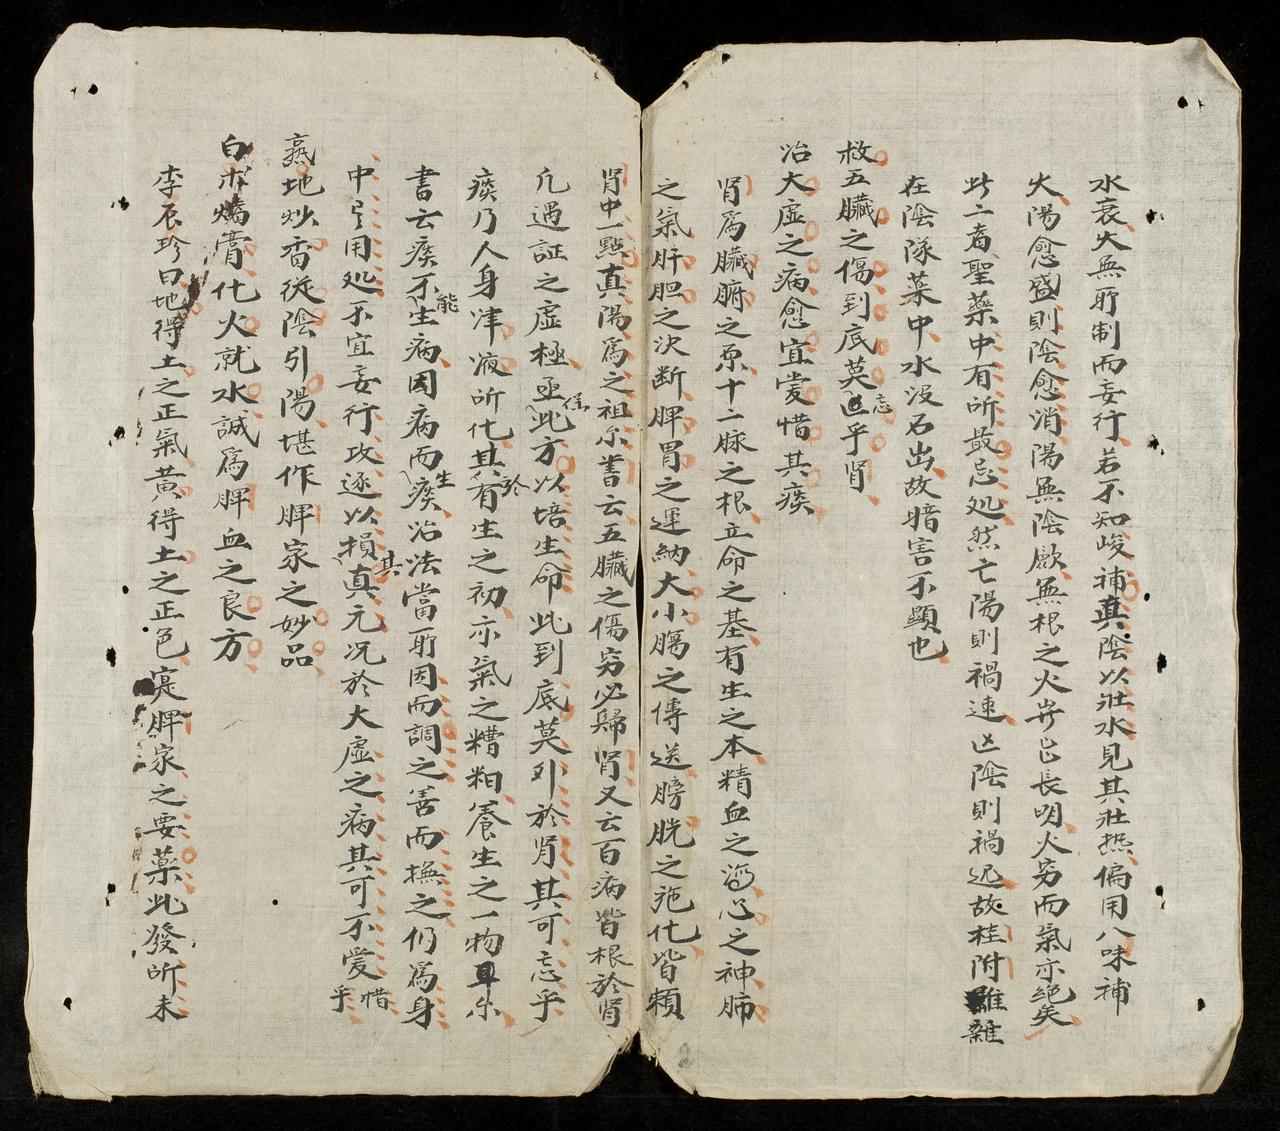 水衰火無所制而妄行若不知峻補真陰以壯水見其壯熱偏用八味補
火陽愈盛則陰愈消陽無陰歛無根之火豈已長明火穷而氣亦絕矣
此二者聖藥中有所最忌処然亡陽則禍速亡陰則禍迟故桂附雖雜
在陰隊薬中水没石出故暗害不顯也
救五臟之傷到底莫忘乎腎
治大虛之病愈宜愛惜其痰
腎爲臟腑之原十二脉之根立命之基有生之本精血之海心之神肺
之氣肝胆之决断脾胃之運納大小腸之傳送膀胱之施化皆賴
腎中一點真陽爲之祖尔書云五臟之傷穷必歸腎又云百病皆根於腎
凢遇証之虛極亟係此方以培生命此到底莫外於腎其可忘乎
痰乃人身津液所化其於有生之初亦氣之糟粕養生之一物耳尔
書云痰不能生病因病而生痰治法當所因而調之善而撫之仍爲身
中引用処不宜妄行攻逐以損其真元况於大虛之病其可不愛惜乎
熹地炒香從陰引陽堪作脾家之妙品
白朮熇膏化火就水誠爲脾血之良方
李辰珍曰地得土之正氣黃得土之正色寔脾家之要藥此發所未